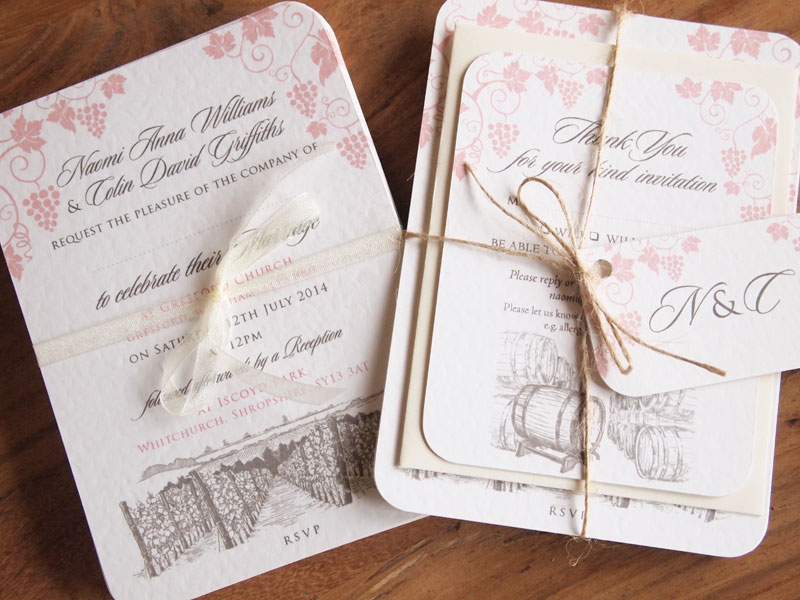 Naomi Anna Williams
& Colin David Griffiths
REQUEST THE PLEASURE OF THE COMPANY OF
to celebrate their Marriage
AT GRESFORD CHURCH
GRESFORD
ON 12TH JULY 2014
12PM
by a Reception
AT ISCOYD PARK
WHITCHURCH, SHROPSHIRE SY13 3AT
RSVP
Thank You
for your kind invitation
M
WILL
BE ABLE TO
Please reply
Please let us know
e.g.
N&C
RSVP